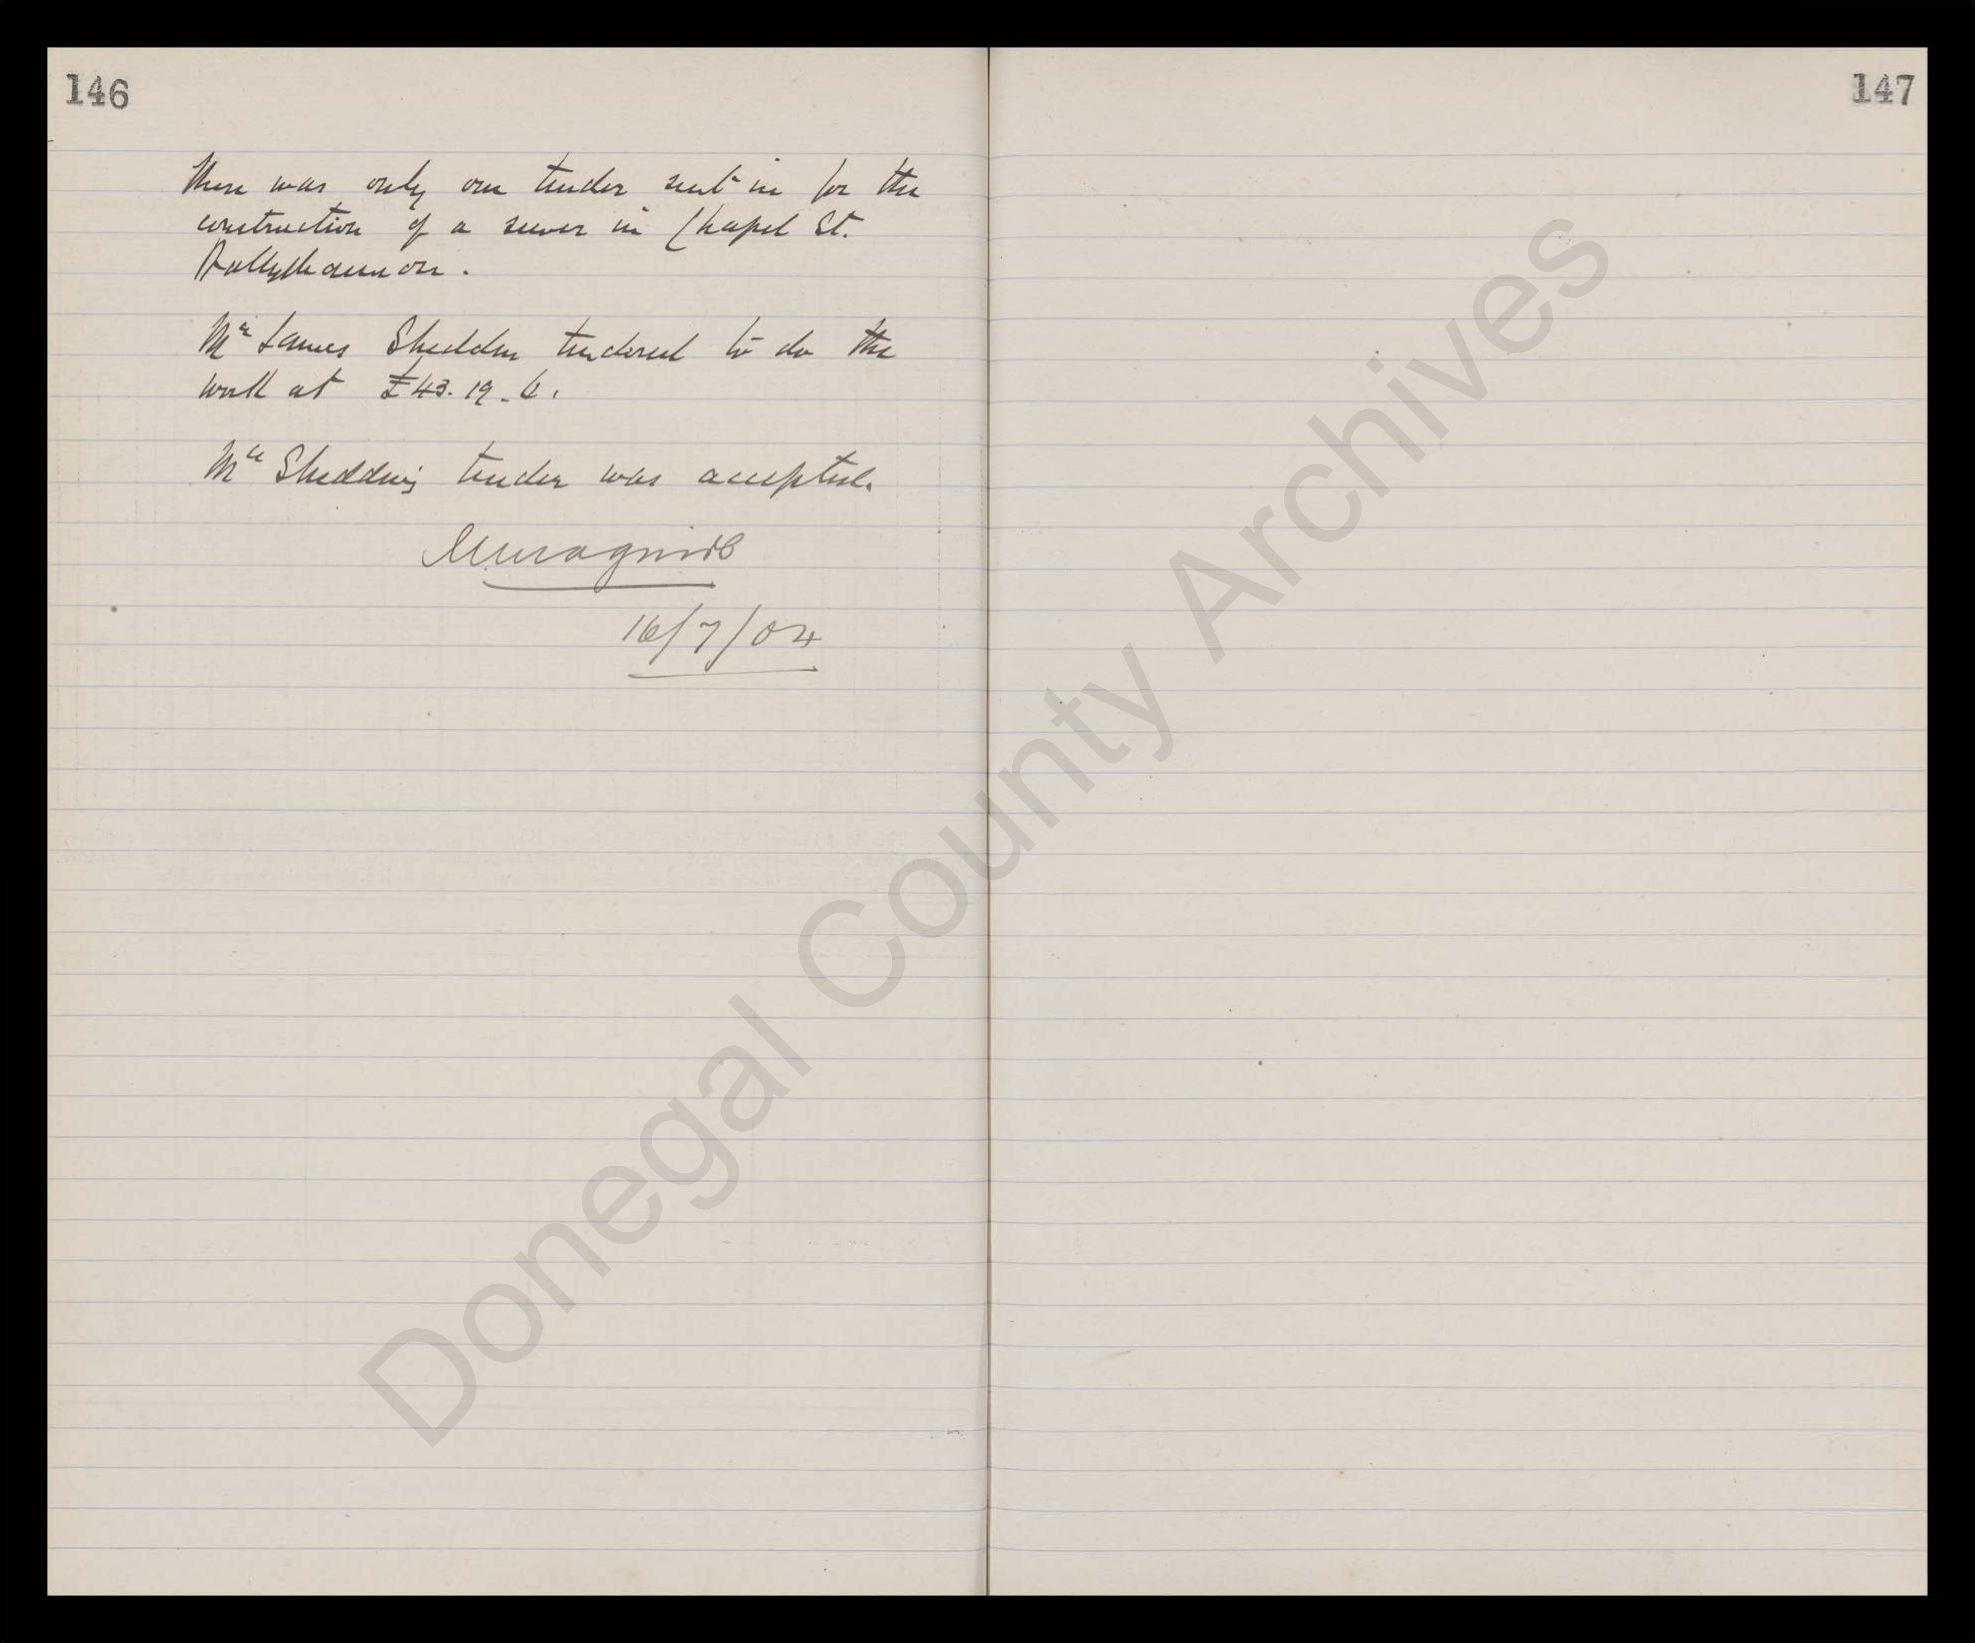 146
There was only one tender sent in for the
construction of a sewer in Chapel St.
Ballyshannon.
Mr James Shedden tendered to do the
work at £43.19.6.
Mr Shedden's tender was accepted.
16/7/04
147
Donegal County Archives